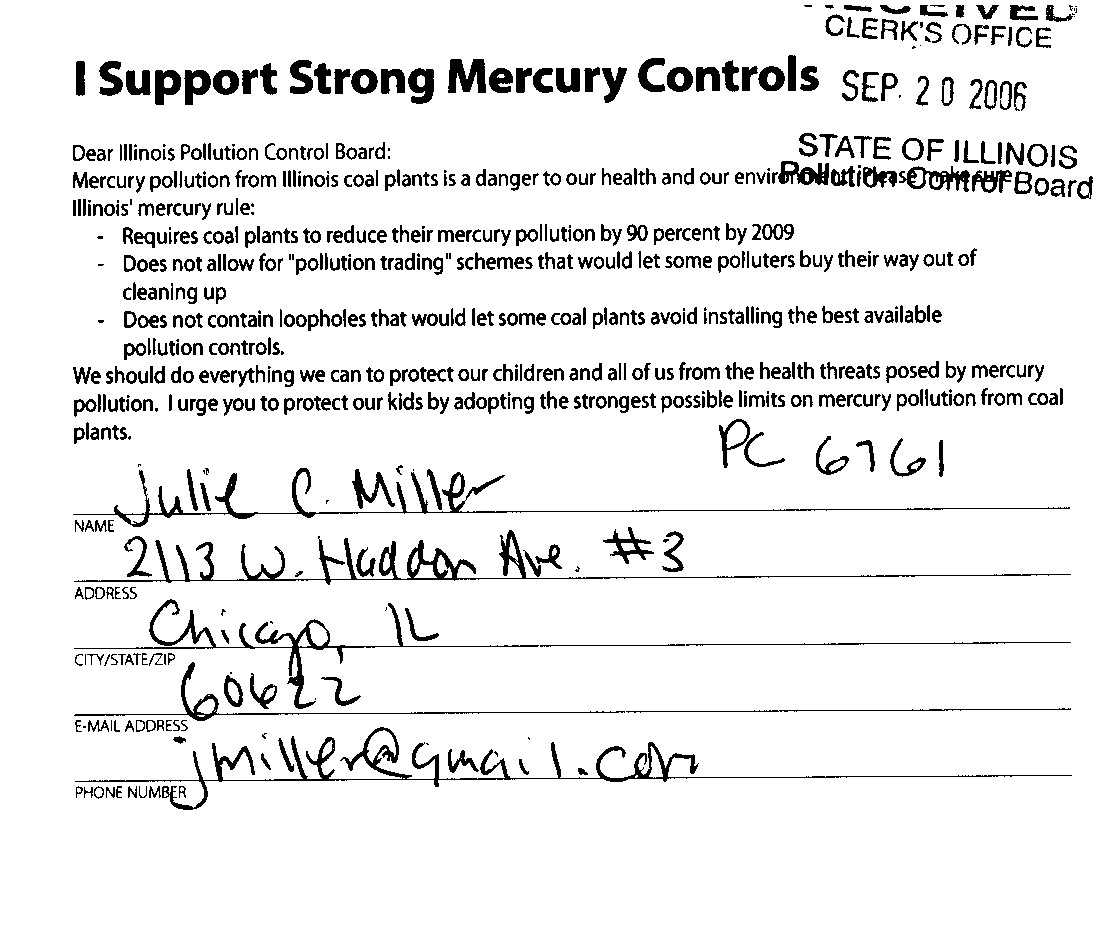 RECEIVED
CLERK'S OFFICE
I Support Strong Mercury Controls
SEP. 20 2006
STATE OF ILLINOIS
Pollution Control Board
Dear Illinois Pollution Control Board:
Mercury pollution from Illinois coal plants is a danger to our health and our environment. Please make sure
Illinois' mercury rule:
- Requires coal plants to reduce their mercury pollution by 90 percent by 2009
- Does not allow for "pollution trading" schemes that would let some polluters buy their way out of
cleaning up
- Does not contain loopholes that would let some coal plants avoid installing the best available
pollution controls.
We should do everything we can to protect our children and all of us from the health threats posed by mercury
pollution. I urge you to protect our kids by adopting the strongest possible limits on mercury pollution from coal
plants.
PC 6761
Julie C. Miller
NAME
2113 W. Haddon Ave. #3
ADDRESS
Chicago, IL
CITY/STATE/ZIP
60622
E-MAIL ADDRESS
jmiller@gmail.com
PHONE NUMBER